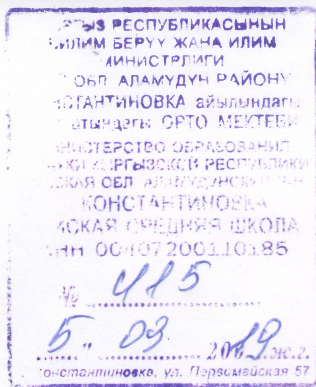 РЕСПУБЛИКАСЫНЫН
БИЛИМ БЕРҮҮ ЖАНА ИЛИМ
МИНИСТРЛИГИ
ОБЛ АЛАМҮДҮН РАЙОНУ
КОНСТАНТИНОВКА айылындагы
атындагы ОРТО МЕКТЕБИ
МИНИСТЕРСТВО ОБРАЗОВАНИЯ
КЫРГЫЗСКОЙ РЕСПУБЛИКИ
СКАЯ ОБЛ АЛАМУДУНСКИЙ
КОНСТАНТИНОВКА
СРЕДНЯЯ ШКОЛА
ИНН
№ 415
5 " 09. 2019 ж.г.
Константиновка, ул. Первомайская 57